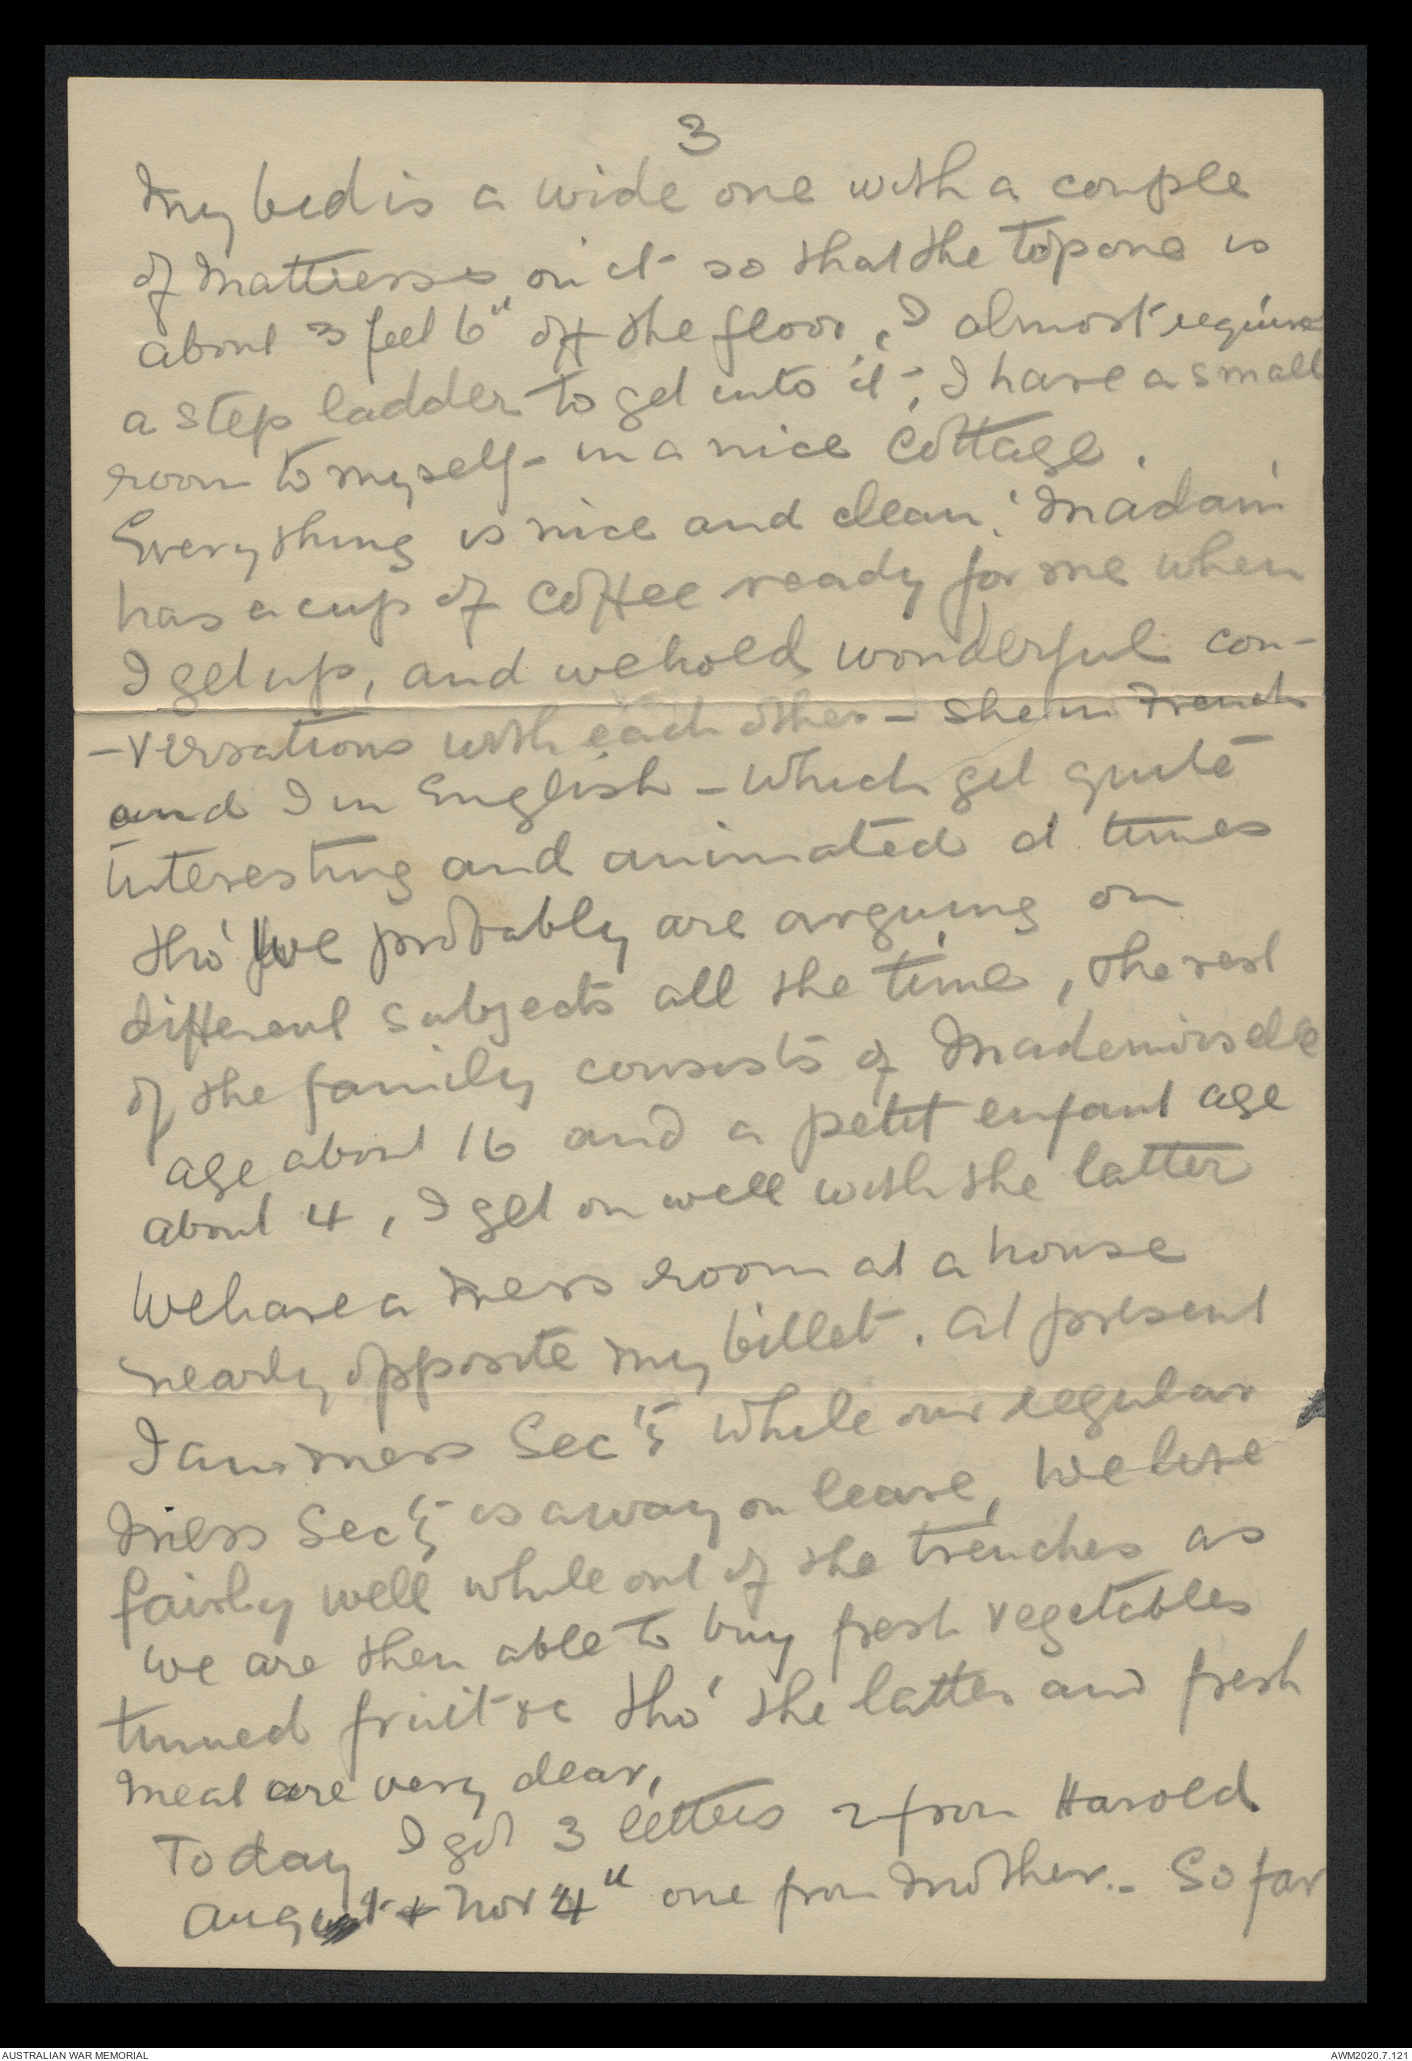 3
My bed is a wide one with a couple
of mattresses on it so that the top one is
about 3 feet 6" off the floor, I almost require
a step ladder to get into it, I have a small
room to myself - in a nice cottage.
Everything is nice and clean. Madam
has a cup of coffee ready for me when
I get up, and we hold wonderful con-
-versations with each other - she in French
and I in English - which get quite
interesting and animated at times
tho' we probably are arguing on
different subjects all the time, the rest
of the family consists of Mademoiselle
age about 16 and a petit enfant age
about 4, I get on well with the latter
We have a mess room at a house
nearly opposite my billet. At present
I am mess Sec'y while our regular
mess Sec'y is away on leave, We live
fairly well while out of the trenches as
we are then able to buy fresh vegetables
tinned fruit &c tho' the latter and fresh
meat are very dear,
Today I got 3 letters 2 from Harold
August & Nov 4" one from Mother. - So far
AUSTRALIAN WAR MEMORIAL
AWM2020.7.121